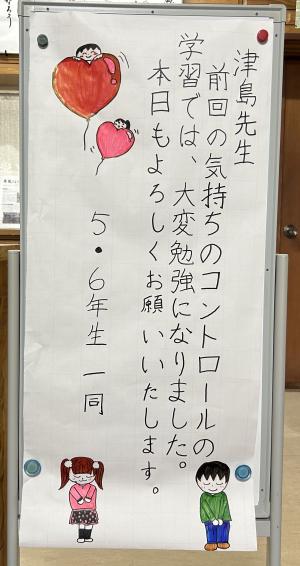 津島先生
前回の気持ちのコントロールの
学習では、大変勉強になりました。
本日もよろしくお願いいたします。
5・6年生 一同